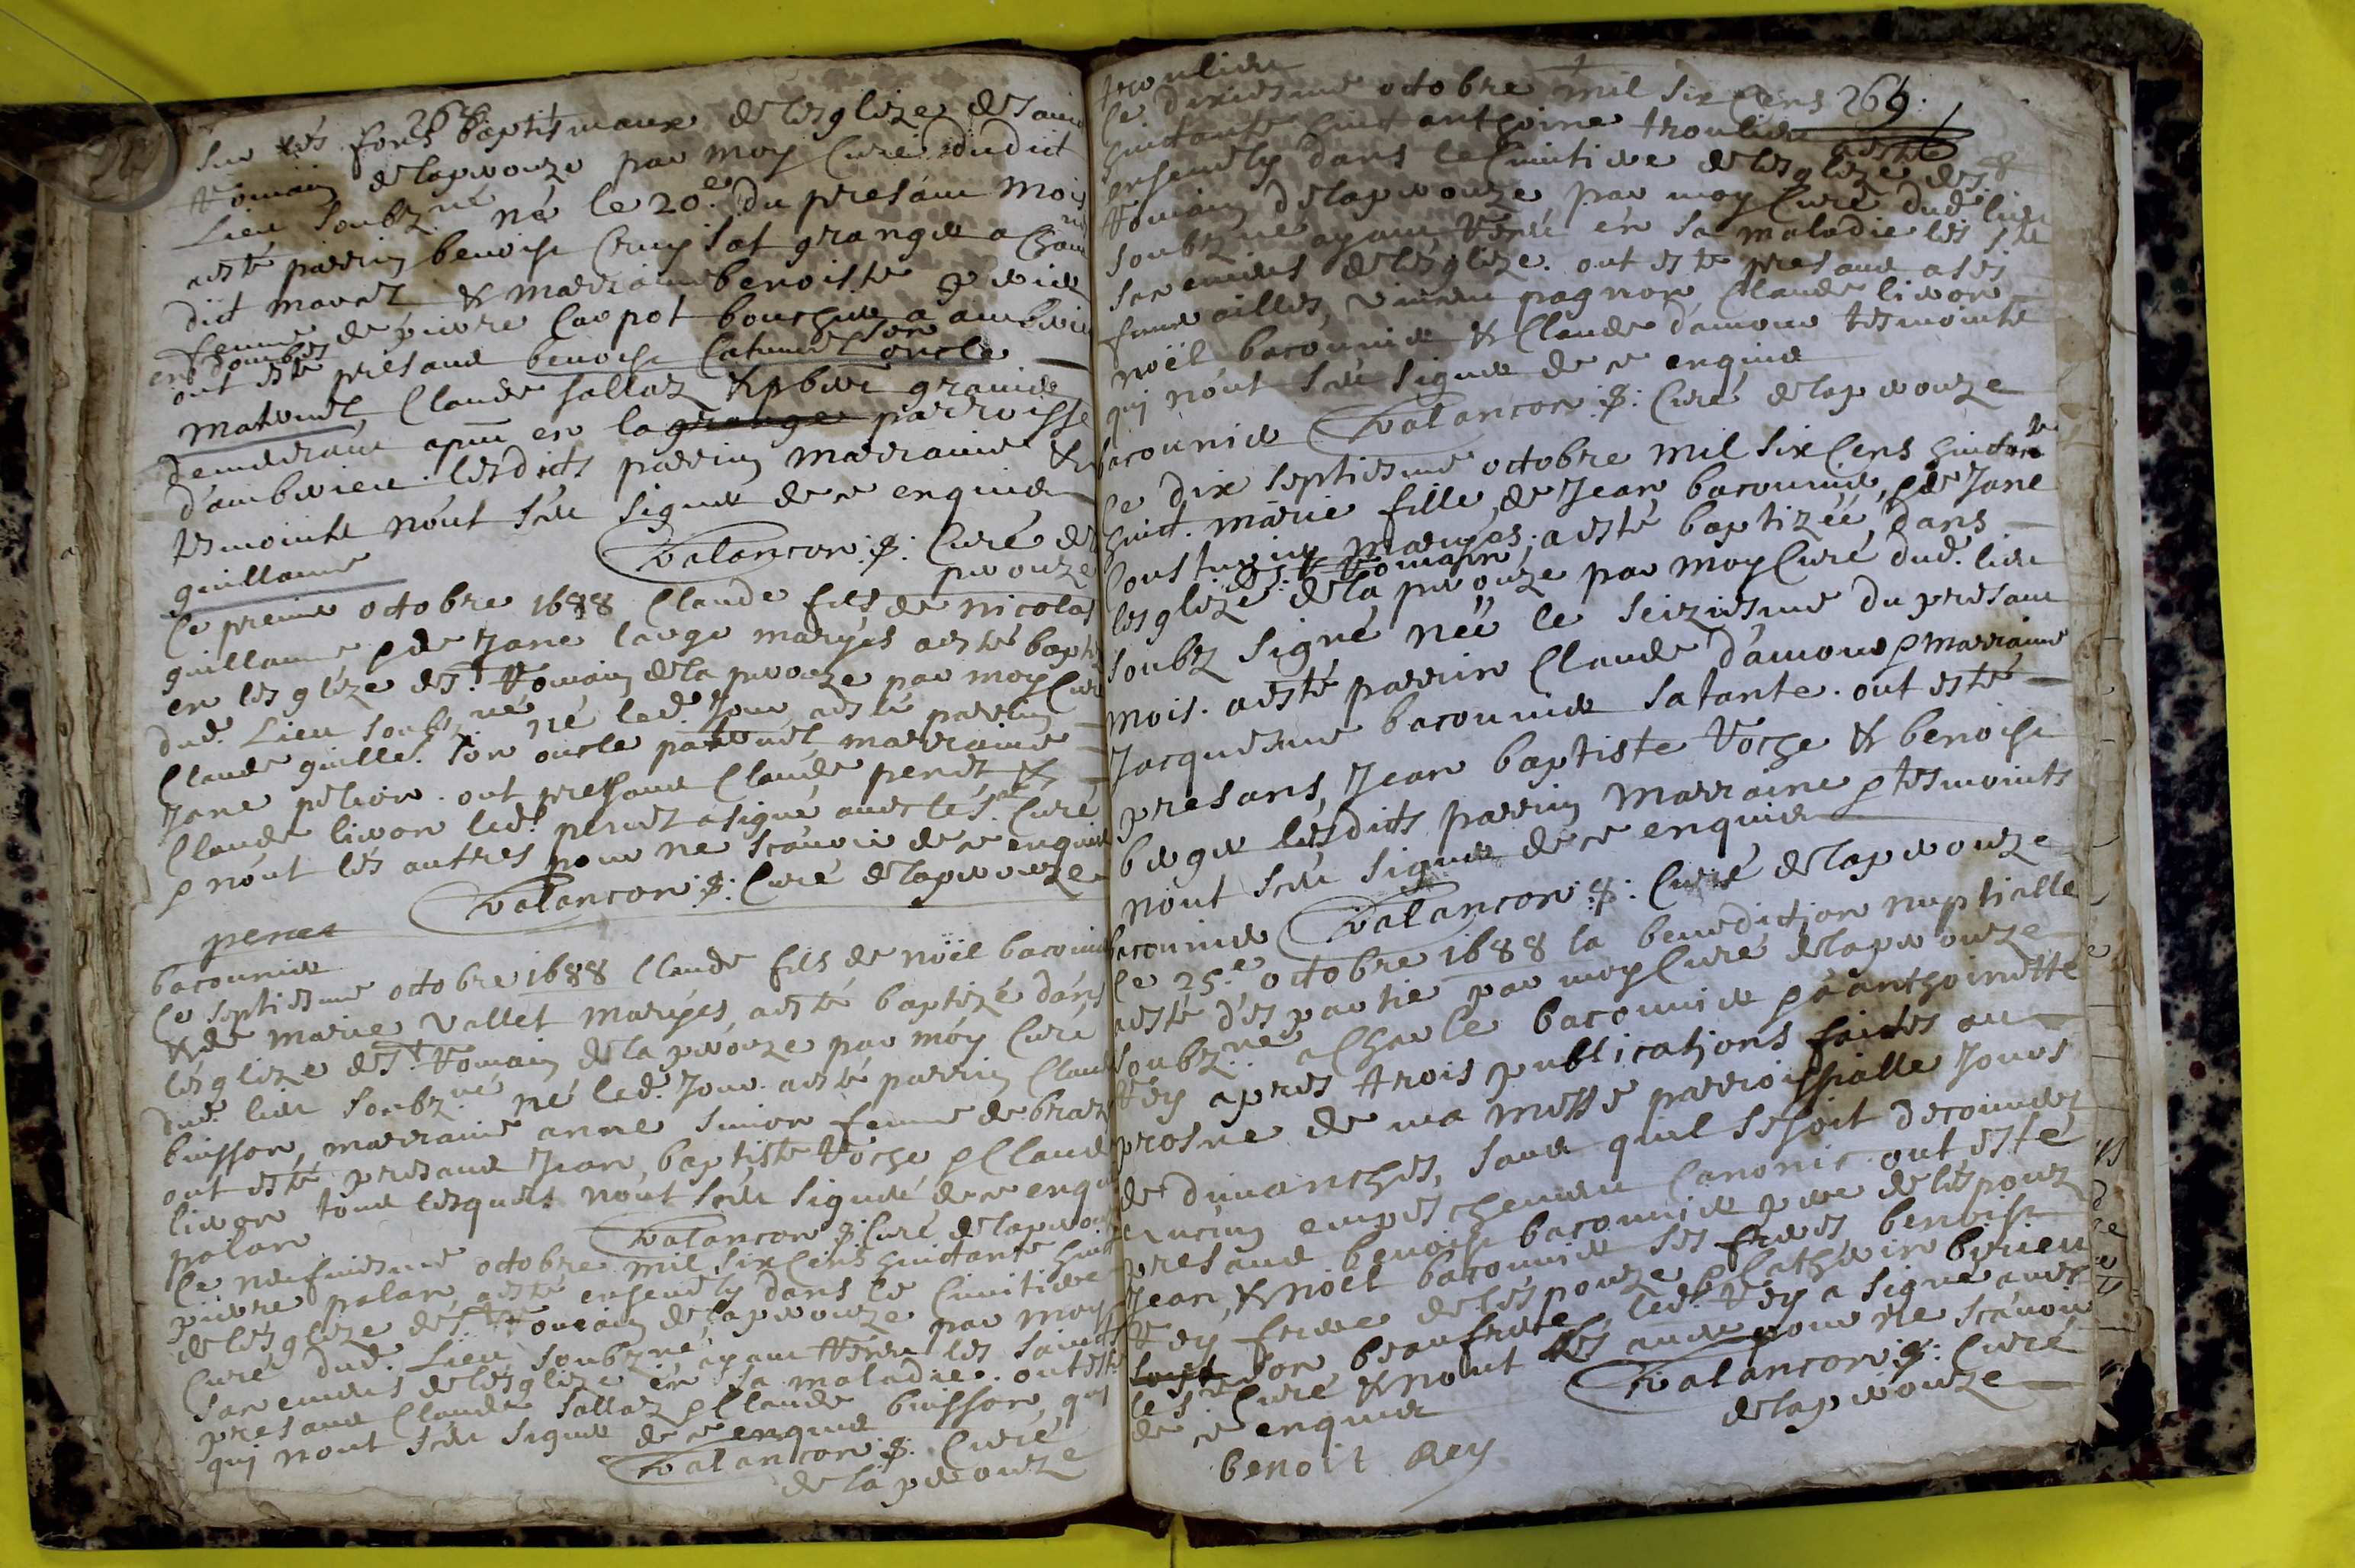 264
sur les fons baptismaux de lesglize de sainct
Romain de lapeirouze par moy Curé dudict
Lieu soubz.né né le 20.e du presant mois
aesté parrin benoist
dict mar & marraine benoiste
femme de pierre Carpot boucher a amberieu
en dombes
ont esté presant benoist son oncle
maternel, Claude sallaz &
demeurant en la grange parroisse
d'amberieu. lesdicts parrin marraine &
tesmoints n'ont sceu signer de ce enquis
Valancon :p: Curé de la
peirouze
guillaume
Ce premier octobre 1688 Claude fils de nicolas
guillaume & de Jane large maryés aesté bapt
en lesglize de St. Romain de la peirouze par moy Curé
dud. Lieu soubz.né né led. Jour aesté parrin
Claude guille. son oncle paternel marraine
Jane ont presant Claude peret &
Claude livon led. peret a signé avec les Curé
& n'ont les autres pour ne scavoir de ce enquis
Valancon :p: Curé de lapeirouze
peret
bacounier
Ce septiesme octobre 1688 Claude fils de noël bacounier
& de marie vallet maryés, aesté baptizé dans
lesglize de St. Romain de la peirouze par moy Curé
dud. lieu soubz.né né led. Jour. aesté parrin Claude
buisson, marraine anne simon femme de
ont esté presant Jean baptiste Roche & Claude
livon tous lesquels n'ont sceu signer de ce enquis
Valancon :p: Curé de lapeirouze
palan
Ce neufviesme octobre mil six Cens huictante huict
pierre palan aesté ensevely dans le Cimitiere
de lesglize de St. Romain de lapeirouze par moy
Curé dud. Lieu soubz.né ayant receu les saincts
sacremens de lesglize en sa maladie. ont esté
presant Claude sallaz & Claude buisson, qui
qui n'ont sceu signer de ce enquis
Valancon :p: Curé
de la peirouze
troulieu
Ce dixiesme octobre mil six Cens 265.
huictante huict anthoine troulieu
aesté
ensevely dans le Cimitiere de lesglize de St
Romain de lapeirouze par moy Curé dud. lieu
soubz.né ayant receu en sa maladie les Sts
sacremens de lesglize. ont esté presant a ses
funerailles, vincent pagnon, Claude livon
noël bacounier & Claude d'amour tesmoints
qui n'ont sceu signer de ce enquis
Valancon :p: Curé de lapeirouze
bacounier
Ce dix septiesme octobre mil six Cens huictante
huict. marie fille de Jean bacounier, & de Jane
maryés, aesté baptizée dans
lesglize de St. Romain de la peirouze par moy Curé dud. lieu
soubz signé née le seiziesme du presant
mois. aesté parrin Claude d'amour & marraine
Jacquesme bacounier sa tante. ont esté
presans, Jean baptiste Roche & benoist
berger lesdicts parrin marraine & tesmoints
n'ont sceu signer de ce enquis
Valancon :p: Curé de lapeirouze
bacounier
Ce 25.e octobre 1688 la benediction nuptialle
aesté despartie par moy Curé de lapeirouze
soubz.né a Charle bacounier & a anthoinette
Rey apres trois publications faictes au
prosne de ma messe parroissialle Jours
de dimanches, sans quil se soit decouvert
aucun empeschement Canonic. ont esté
presant benoist bacounier pere de lespouz
Jean, & noël bacounier ses freres, benoist
Rey frere de lespouze & Catherin byrieu
son beaufrere, led. Rey a signé avec
le Sr. Curé & n'ont les autres pour ne scavoir
de ce enquis
Valancon :p: Curé
de lapeirouze
benoit Rey